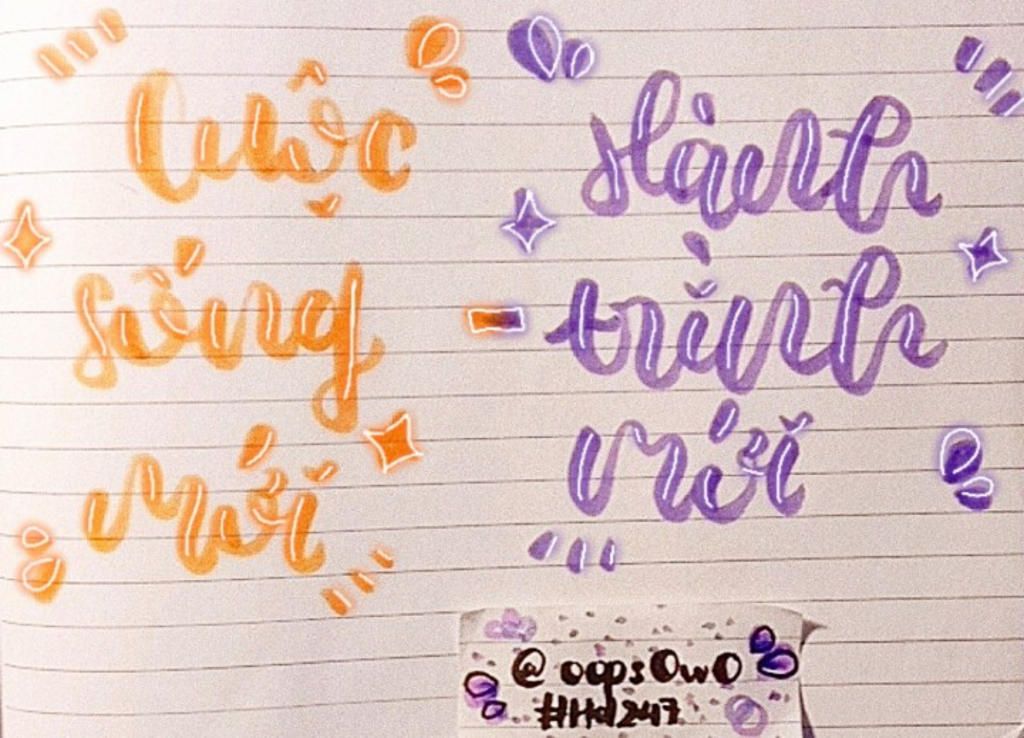 Cuộc
sống
mới
-
Hành
trình
mới
@oopsOwO
#Hd247